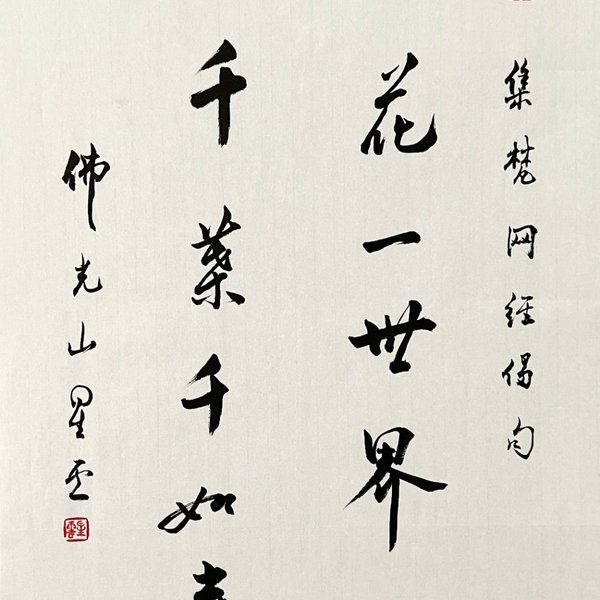 集梵网经偈句
花一世界
千葉千如来
佛光山星雲